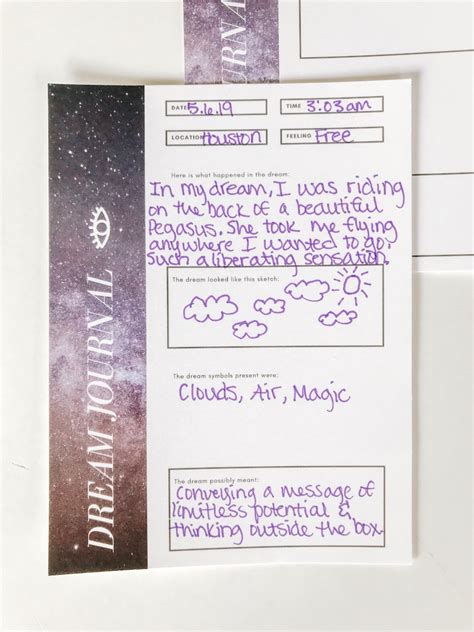 URNAL
DREAM JOURNAL
DATE 5.6.19 TIME 3:03am
LOCATION Houston FEELING Free
Here is what happened in the dream:
In my dream, I was riding
on the back of a beautiful
Pegasus. She took me flying
anywhere I wanted to go.
Such a liberating sensation.
The dream looked like this sketch:
The dream symbols present were:
Clouds, Air, Magic
The dream possibly meant:
Conveying a message of
limitless potential &
thinking outside the box.